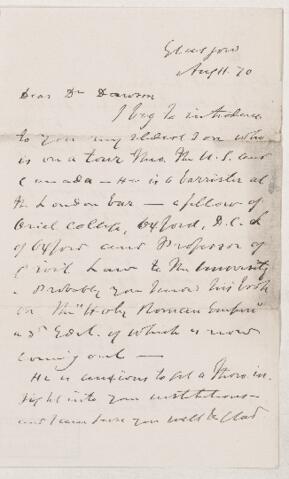 Glasgow
Augt. 70
Dear Dr Dawson
I beg to introduce
to you my eldest son who
is on a tour thro. the U.S. and
Canada — He is a barrister at
the London bar — a fellow of
Oriel College, Oxford, D.C.L
of Oxford and Professor of
Civil Law to the University
. Probably you know his book
on the "Holy Roman Empire"
a 3d Edit. of which is now
coming out —
He is anxious to get a thoro in-
sight into your institutions —
and I am sure you will be glad